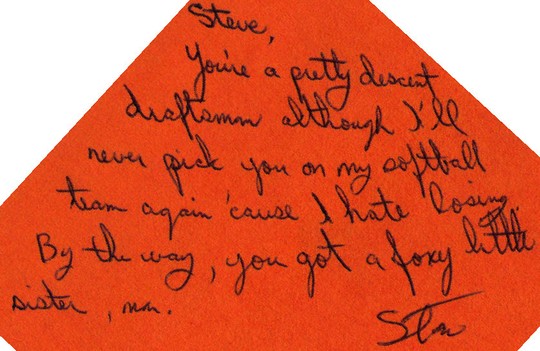 Steve,
You're a pretty descent
draftsman although I'll
never pick you on my softball
team again 'cause I hate losing.
By the way, you got a foxy little
sister, mm.
Stan